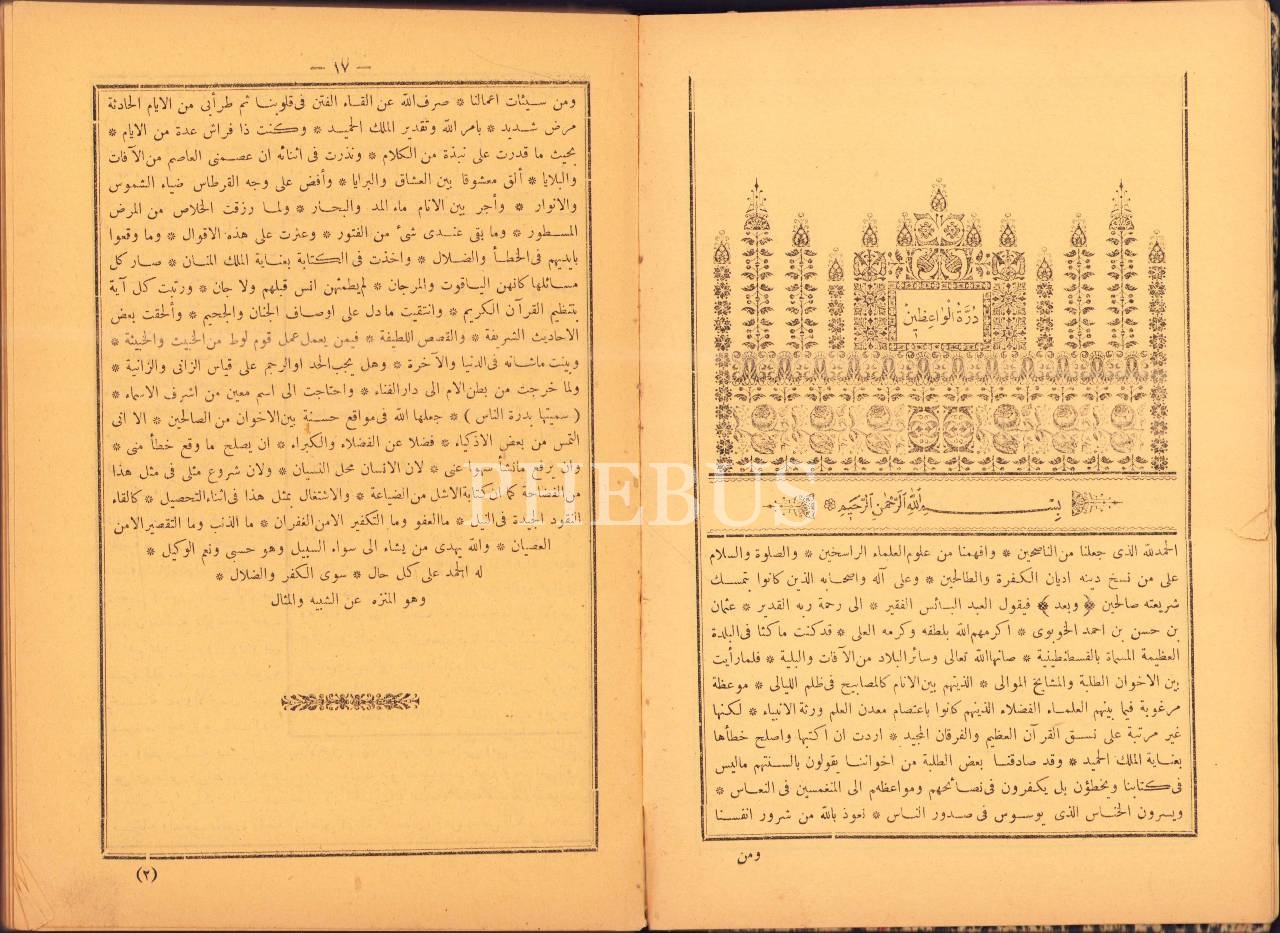 درة الواعظين
بسم الله الرحمن الرحيم
الحمدلله الذى جعلنا من الناصحين * وافهمنا من علوم العلماء الراسخين * والصلوة والسلام
على من نسخ دينه اديان الكفرة والطالحين * وعلى آله واصحابه الذين كانوا بتمسك
شريعته صالحين ﴿ وبعد ﴾ فيقول العبد البائس الفقير * الى رحمة ربه القدير * عثمان
بن حسن بن احمد الخوبوى * اكرمهم الله بلطفه وكرمه العلى * قد كنت ماكثا فى البلدة
العظيمة المسماة بالقسطنطينية * صانها الله تعالى وسائر البلاد من الآفات والبلية * فلما رأيت
بين الاخوان الطلبة والمشايخ الموالى * الذينهم بين الانام كالمصابيح فى ظلم الليالى * موعظة
مرغوبة فيما بينهم العلماء الفضلاء الذينهم كانوا باعتصام معدن العلم ورثة الانبياء * لكنها
غير مرتبة على نسق القرآن العظيم والفرقان المجيد * اردت ان اكتبها واصلح خطأها
بعناية الملك الحميد * وقد صادقنا بعض الطلبة من اخواننا يقولون بالسنتهم ماليس
فى كتابنا ويخطؤن بل يكفرون فى نصائحهم ومواعظهم الى المنغمسين فى النعاس *
ويسرون الخناس الذى يوسوس فى صدور الناس * نعوذ بالله من شرور انفسنا
ومن
— ١٧ —
ومن سيئات اعمالنا * صرف الله عن القاء الفتن فى قلوبنا ثم طرأبى من الايام الحادثة
مرض شديد * بامر الله وتقدير الملك الحميد * وكنت ذا فراش عدة من الايام *
بحيث ما قدرت على نبذة من الكلام * ونذرت فى اثنائه ان عصمنى العاصم من الآفات
والبلايا * ألق معشوقا بين العشاق والبرايا * وأفض على وجه القرطاس ضياء الشموس
والانوار * وأجر بين الانام ماء المد والبحار * ولما رزقت الخلاص من المرض
المسطور * وما بقى عندى شئ من الفتور * وعثرت على هذه الاقوال * وما وقعوا
بايديهم فى الخطأ والضلال * واخذت فى الكتابة بعناية الملك المنان * صار كل
مسائلها كانهن الياقوت والمرجان * لم يطمثهن انس قبلهم ولا جان * ورتبت كل آية
بتنظيم القرآن الكريم * وانتقيت مادل على اوصاف الجنان والجحيم * وألحقت بعض
الاحاديث الشريفة * والقصص اللطيفة * فيمن يعمل عمل قوم لوط من الخبيث والخبيثة *
وبينت ماشانه فى الدنيا والآخرة * وهل يجب الحد او الرجم على قياس الزانى والزانية *
ولما خرجت من بطن الام الى دار الفناء * واحتاجت الى اسم معين من اشرف الاسماء *
( سميتها بدرة الناس ) * جعلها الله فى مواقع حسنة بين الاخوان من الصالحين * الا انى
التمس من بعض الاذكياء * فضلا عن الفضلاء والكبراء * ان يصلح ما وقع خطأ منى *
وان يرفع مانشأ سهوا عنى * لان الانسان محل النسيان * ولان شروع مثلى فى مثل هذا
من الفضاحة كما ان كتابة الاشل من الضياعة * والاشتغال بمثل هذا فى اثناء التحصيل * كالقاء
النقود الجيدة فى النيل * ما العفو وما التكفير الا من الغفران * ما الذنب وما التقصير الا من
العصيان * والله يهدى من يشاء الى سواء السبيل وهو حسبى ونعم الوكيل *
له الحمد على كل حال * سوى الكفر والضلال *
وهو المنزه عن الشبيه والمثال
(٢)
PHEBUS